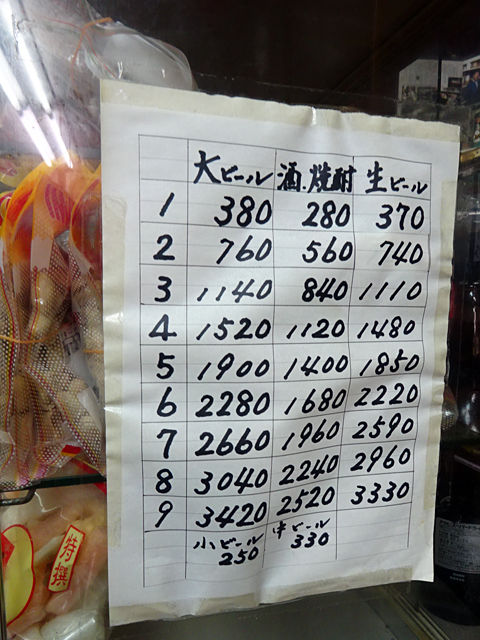 大ビール 酒.焼酎 生ビール
1 380 280 370
2 760 560 740
3 1140 840 1110
4 1520 1120 1480
5 1900 1400 1850
6 2280 1680 2220
7 2660 1960 2590
8 3040 2240 2960
9 3420 2520 3330
小ビール 中ビール
250 330
特撰